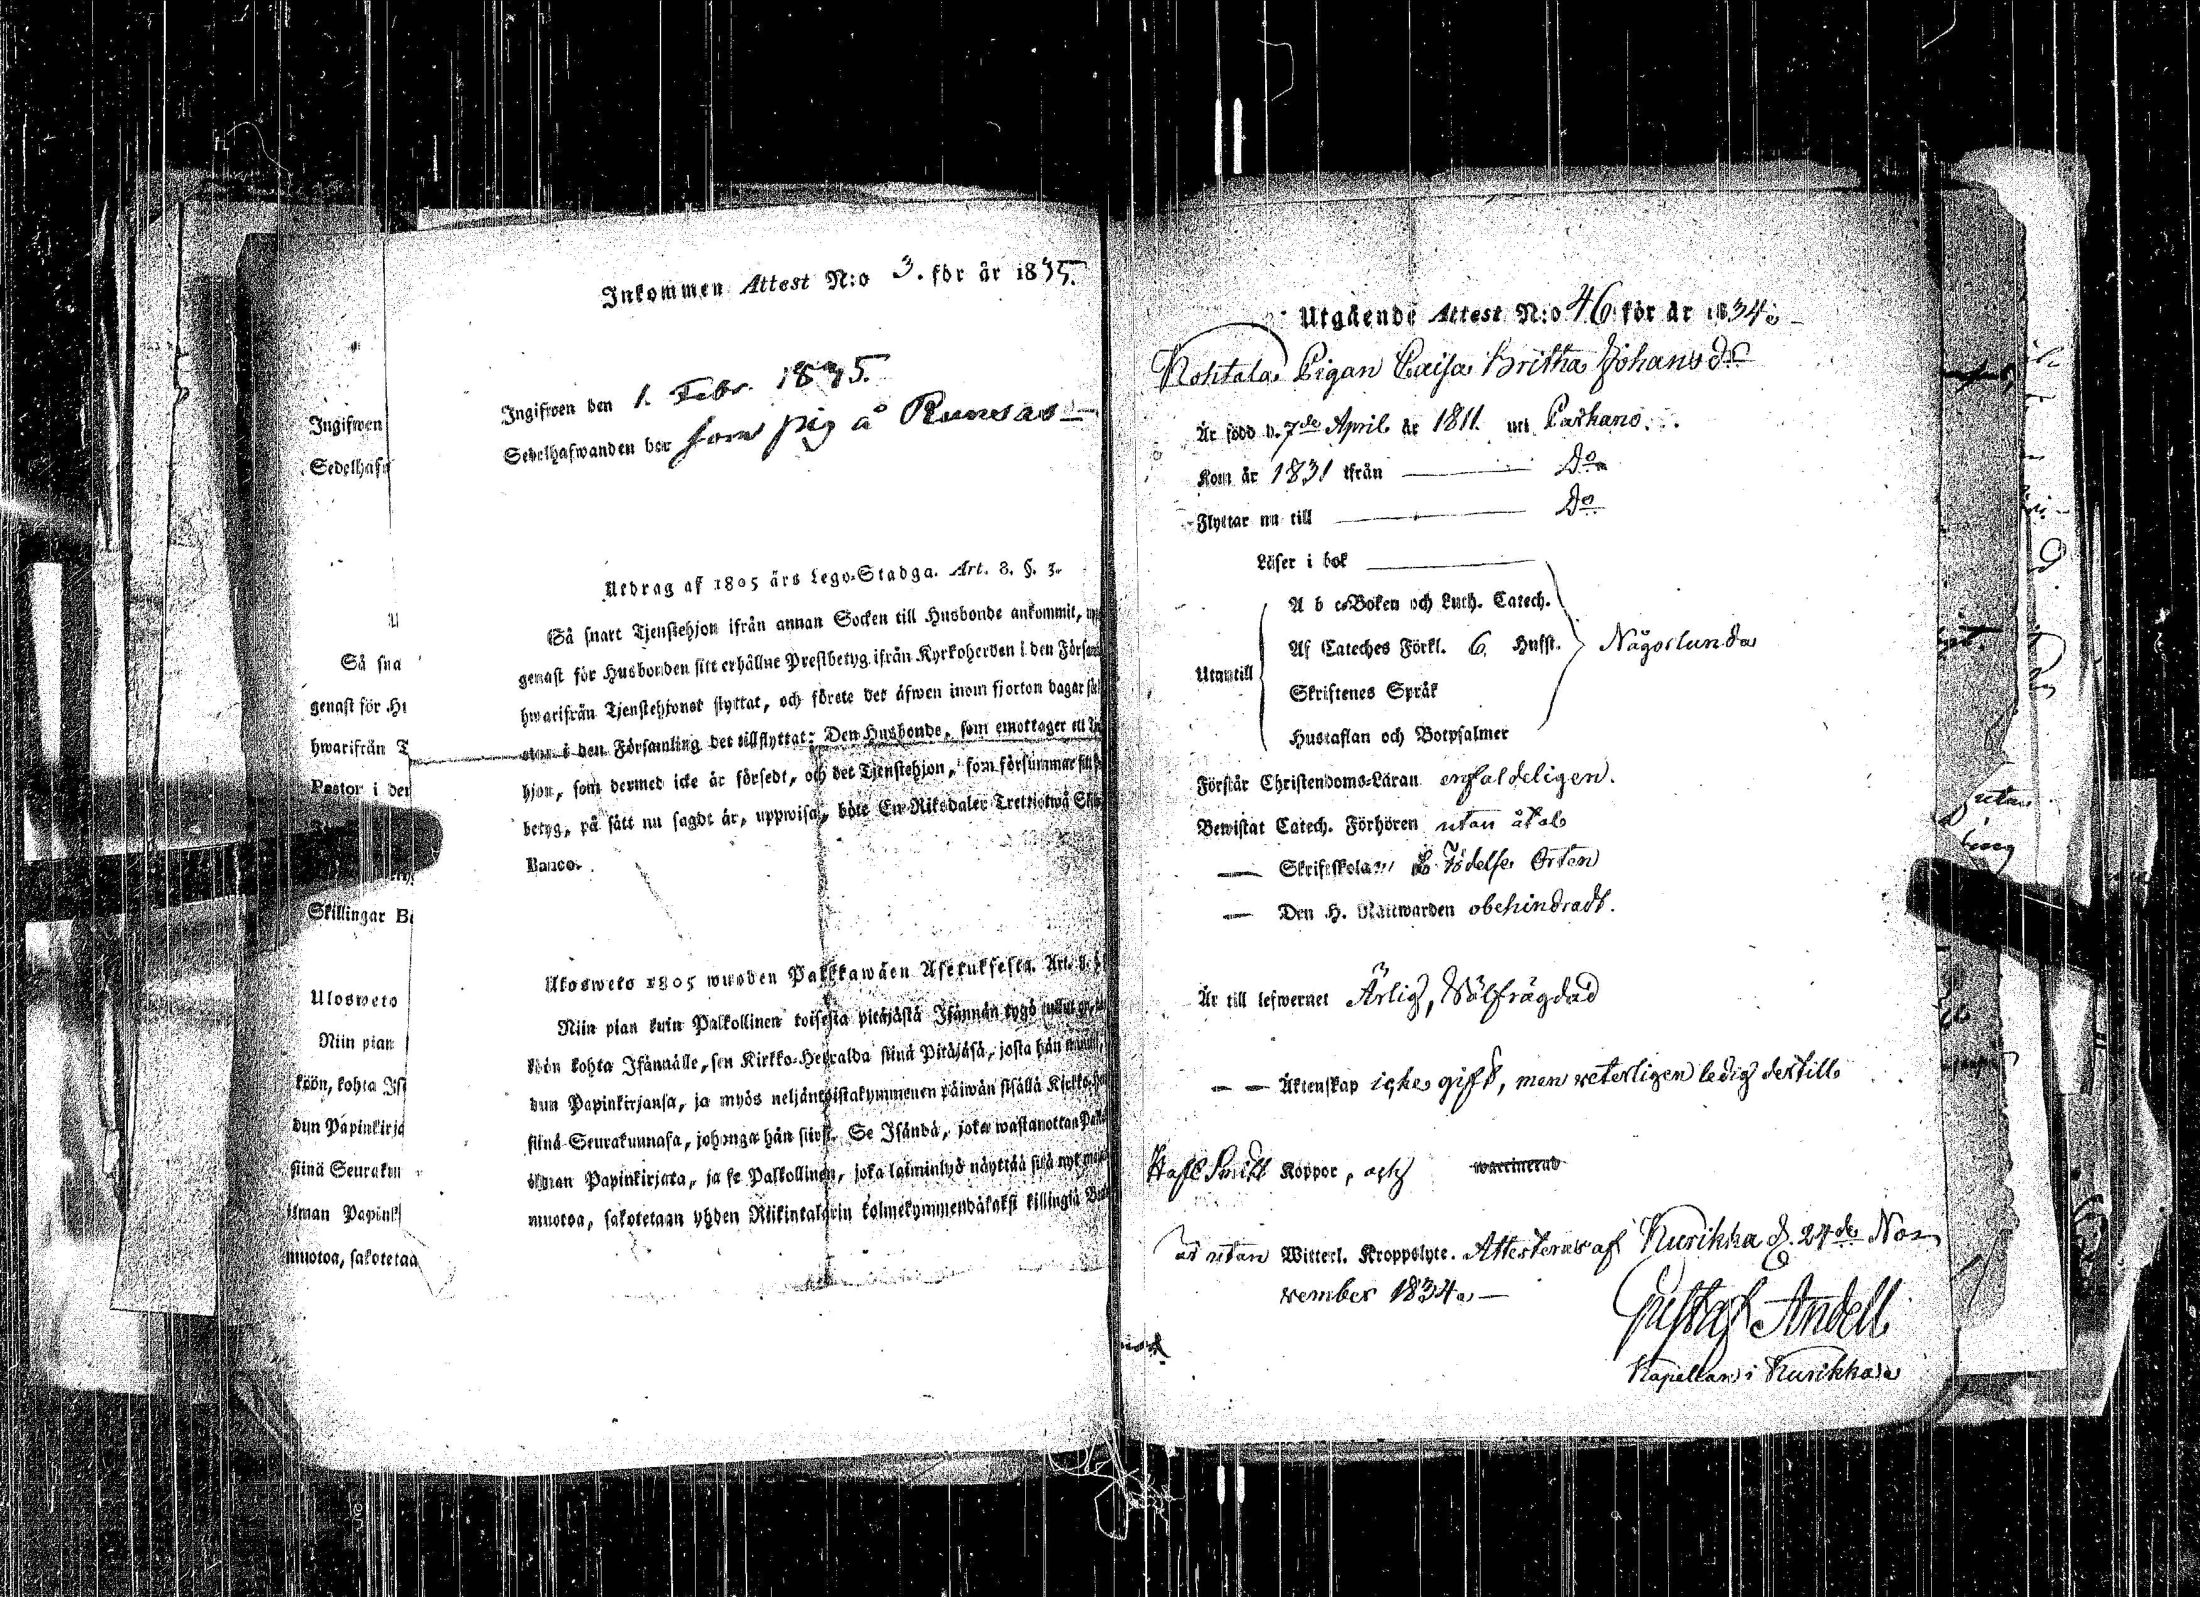 Inkommen Attest N:o 3. för år 1835.
Ingifwen den 1. Febr. 1835.
Sedelhafwanden bor som pig å
Utdrag af 1805 års Lego-Stadga. Art. 8. §. 3.
Så snart Tjenstehjon ifrån annan Socken till Husbonde ankommit,
genast för Husbonden sitt erhållne Prestbetyg ifrån Kyrkoherden i den
hwarifrån Tjenstehjonet flyttat, och förete det äfwen inom fjorton dagar
i den Församling det tillflyttat: Den Husbonde, som emottager ett
hjon, som dermed icke är försedt, och det Tjenstehjon, som försummar
betyg, på sätt nu sagdt är, uppwisa, böte En Riksdaler Trettiotwå
Banco.
Ulosweto 1805 wuoden Palkkawäen Asetuksesta. Art. 8.
Niin pian kuin Palkollinen toisesta pitäjästä Isännän tygö
köön kohta Isännälle, sen Kirkko-Herralda siinä Pitäjäsä, josta hän
dun Papinkirjansa, ja myös neljäntoistakymmenen päiwän sisällä
siinä Seurakunnasa, johonga hän siirsi. Se Isändä, joka wastanottaa
ilman Papinkirjata, ja se Palkollinen, joka laiminlyö näyttää sitä nyt
muotoa, sakotetaan yhden Riikintalarin kolmekymmendäkaksi killingiä
Ingifwen
Sedelhafw
Så sna
genast för Hu
hwarifrån T
Pastor i den
Skillingar B
Ulosweto
Niin pian
köön, kohta Isä
dun Papinkirja
siinä Seurakun
ilman Papink
muotoa, sakotetaa
Utgående Attest N:o 46 för år 1834.
Kohtala Pigan Caisa Britha Johansdr
Är född d. 7de April år 1811. uti Parkano.
Kom år 1831 ifrån Do
Flyttar nu till Do
Läser i bok
A b c-Boken och Luth. Catech.
Utantill Af Cateches Förkl. 6 Hufst. Någorlunda
Skriftenes Språk
Hustaflan och Botpsalmer
Förstår Christendoms-Läran enfaldeligen.
Bewistat Catech. Förhören utan åtal
— Skriftskolan Födelse Orten
— Den H. Nattwarden obehindradt.
Är till lefwernet Ärlig, Wälfrägdad
— — Äktenskap icke gift, men veterligen ledig dertill
Haft Koppor, och waccinerad
är utan Witterl. Kroppslyte. Attesteras af Kurikka d. 24de No-
vember 1834.
Gustaf Andell
Kapellan i Kurikka